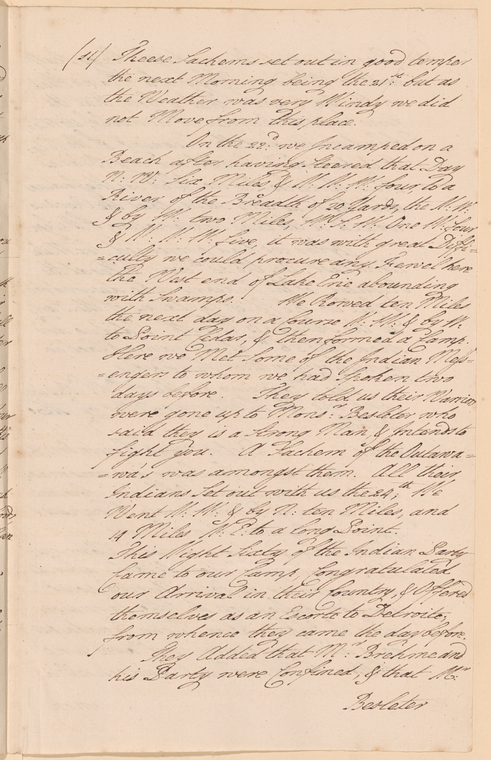 (14) These Sachems set out in good temper
the next Morning being the 21st but as
the Weather was very Windy we did
not Move from this place.
On the 22d we Incamped on a
Beach after having steered that Day
N: W: Six Miles & N: N: W: four to a
River of the Breadth of 20 Yards, the N:W:
& by W: two Miles, W: S: W: One W: four
& N: N: W: five, it was with great Diffi-
=culty we could procure any Fuewel here
the West end of Lake Erie abounding
with Swamps. We Rowed ten Miles
the next day on a Course N: W: & by W:
to Point Cedar, & then formed a Camp.
Here we Met some of the Indian Mess-
=engers to whom we had Spoken two
days before. They told us their Warriors
were gone up to Monsr: Bealeter who
said they is a Strong Man, & Intends to
fight you. A Sachem of the Outawa-
=was was amongst them. All these
Indians Set out with us the 24th; We
Went N: W: & by N: ten Miles, and
4 Miles N. E: to a long Point.
This Night Sixty of the Indian Party
Came to our Camp, Congratulated
our Arrival in their Country, & Offered
themselves as an Escorte to Detroite,
from whence they came the day before.
They Added that Mr: Brehme and
his Party were Confined, & that Mr
Bealeter